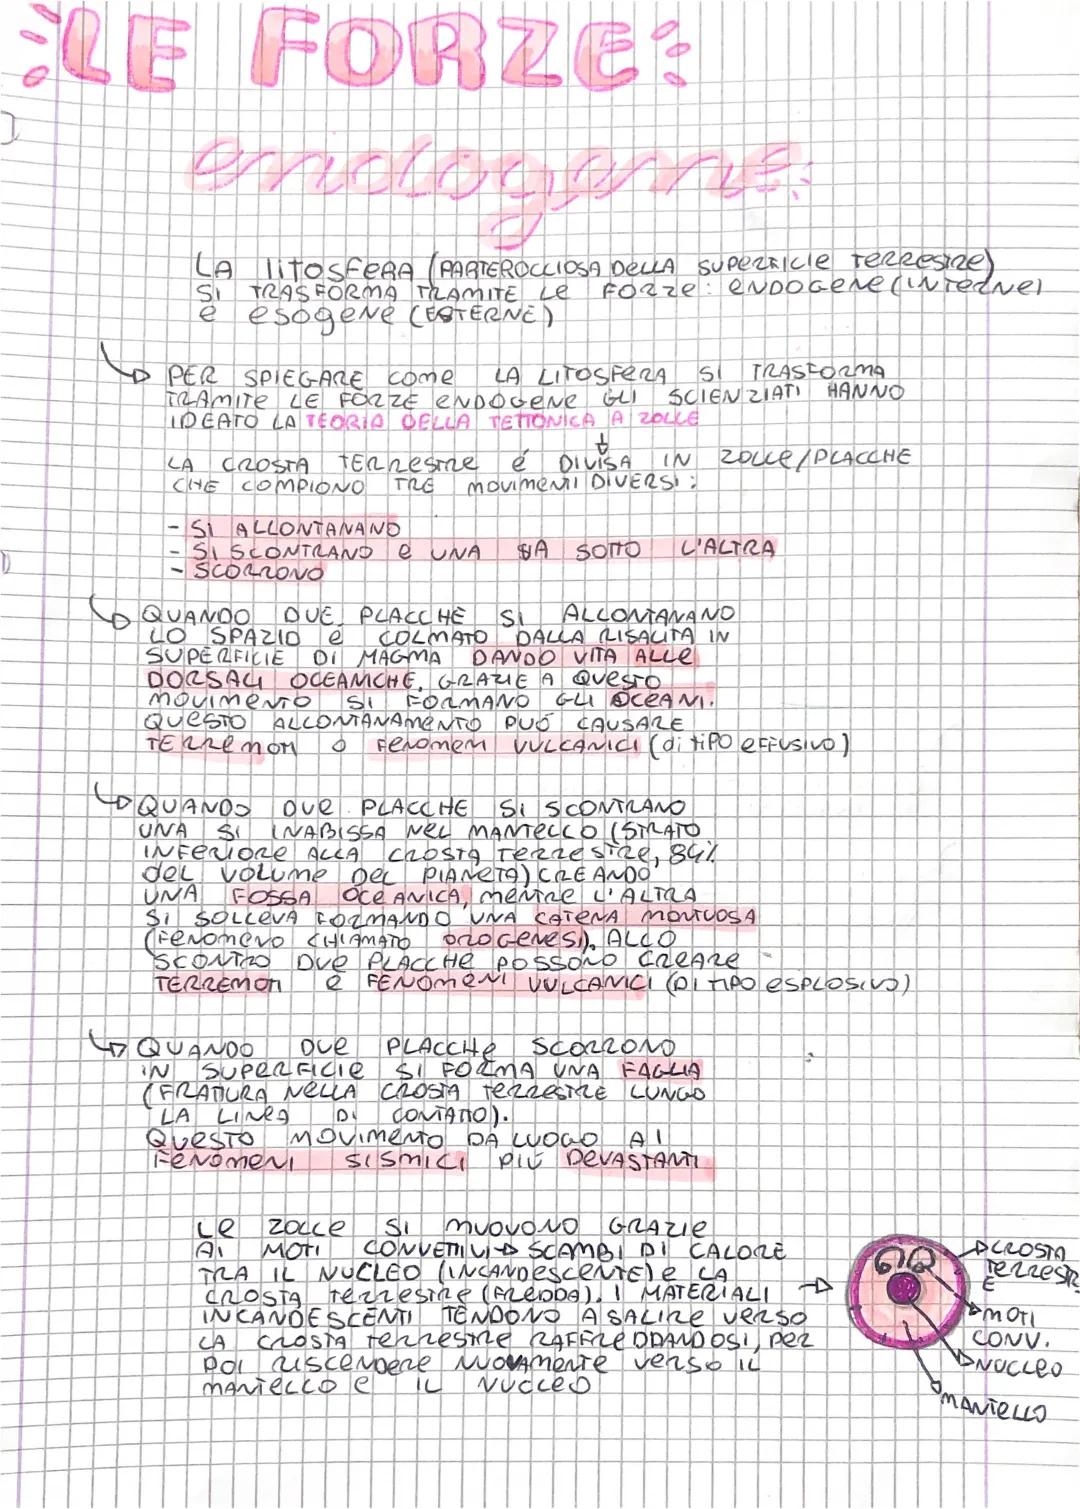 LE FORZE
endogene
LA LITOSFERA (PARTEROCCIOSA DELLA SUPERFICIE TERRESTRE)
SI TRASFORMA TRAMITE LE FORZE: ENDOGENE (INTERNE)
E ESOGENE (ESTERNE)
PER SPIEGARE COME LA LITOSFERA SI TRASFORMA
TRAMITE LE FORZE ENDOGENE GLI SCIENZIATI HANNO
IDEATO LA TEORIA DELLA TETTONICA A ZOLLE
LA CROSTA TERRESTRE É DIVISA IN ZOLLE/PLACCHE
CHE COMPIONO TRE MOVIMENTI DIVERSI:
- SI ALLONTANANO
- SI SCONTRANO E UNA VA SOTTO L'ALTRA
- SCORRONO
QUANDO DUE PLACCHE SI ALLONTANANO
LO SPAZIO É COLMATO DALLA RISALITA IN
SUPERFICIE DI MAGMA DANDO VITA ALLE
DORSALI OCEANICHE. GRAZIE A QUESTO
MOVIMENTO SI FORMANO GLI OCEANI.
QUESTO ALLONTANAMENTO PUÓ CAUSARE
TERREMOTI O FENOMENI VULCANICI (di TIPO EFFUSIVO)
QUANDO DUE PLACCHE SI SCONTRANO
UNA SI INABISSA NEL MANTELLO (STRATO
INFERIORE ALLA CROSTA TERRESTRE, 84%
del VOLUME DEL PIANETA) CREANDO
UNA FOSSA OCEANICA, MENTRE L'ALTRA
SI SOLLEVA FORMANDO UNA CATENA MONTUOSA
(FENOMENO CHIAMATO OROGENESI). ALLO
SCONTRO DUE PLACCHE POSSONO CREARE
TERREMOTI E FENOMENI VULCANICI (DI TIPO ESPLOSIVO)
QUANDO DUE PLACCHE SCORRONO
IN SUPERFICIE SI FORMA UNA FAGLIA
(FRATTURA NELLA CROSTA TERRESTRE LUNGO
LA LINEA DI CONTATTO).
QUESTO MOVIMENTO DA LUOGO AI
FENOMENI SISMICI PIÚ DEVASTANTI
LE ZOLLE SI MUOVONO GRAZIE
AI MOTI CONVETTIVI → SCAMBI DI CALORE
TRA IL NUCLEO (INCANDESCENTE) E LA
CROSTA TERRESTRE (FREDDA). I MATERIALI
INCANDESCENTI TENDONO A SALIRE VERSO
LA CROSTA TERRESTRE RAFFREDDANDOSI, PER
POI RISCENDERE NUOVAMENTE VERSO IL
MANTELLO E IL NUCLEO
CROSTA
TERRESTR
E
MOTI
CONV.
NUCLEO
MANTELLO